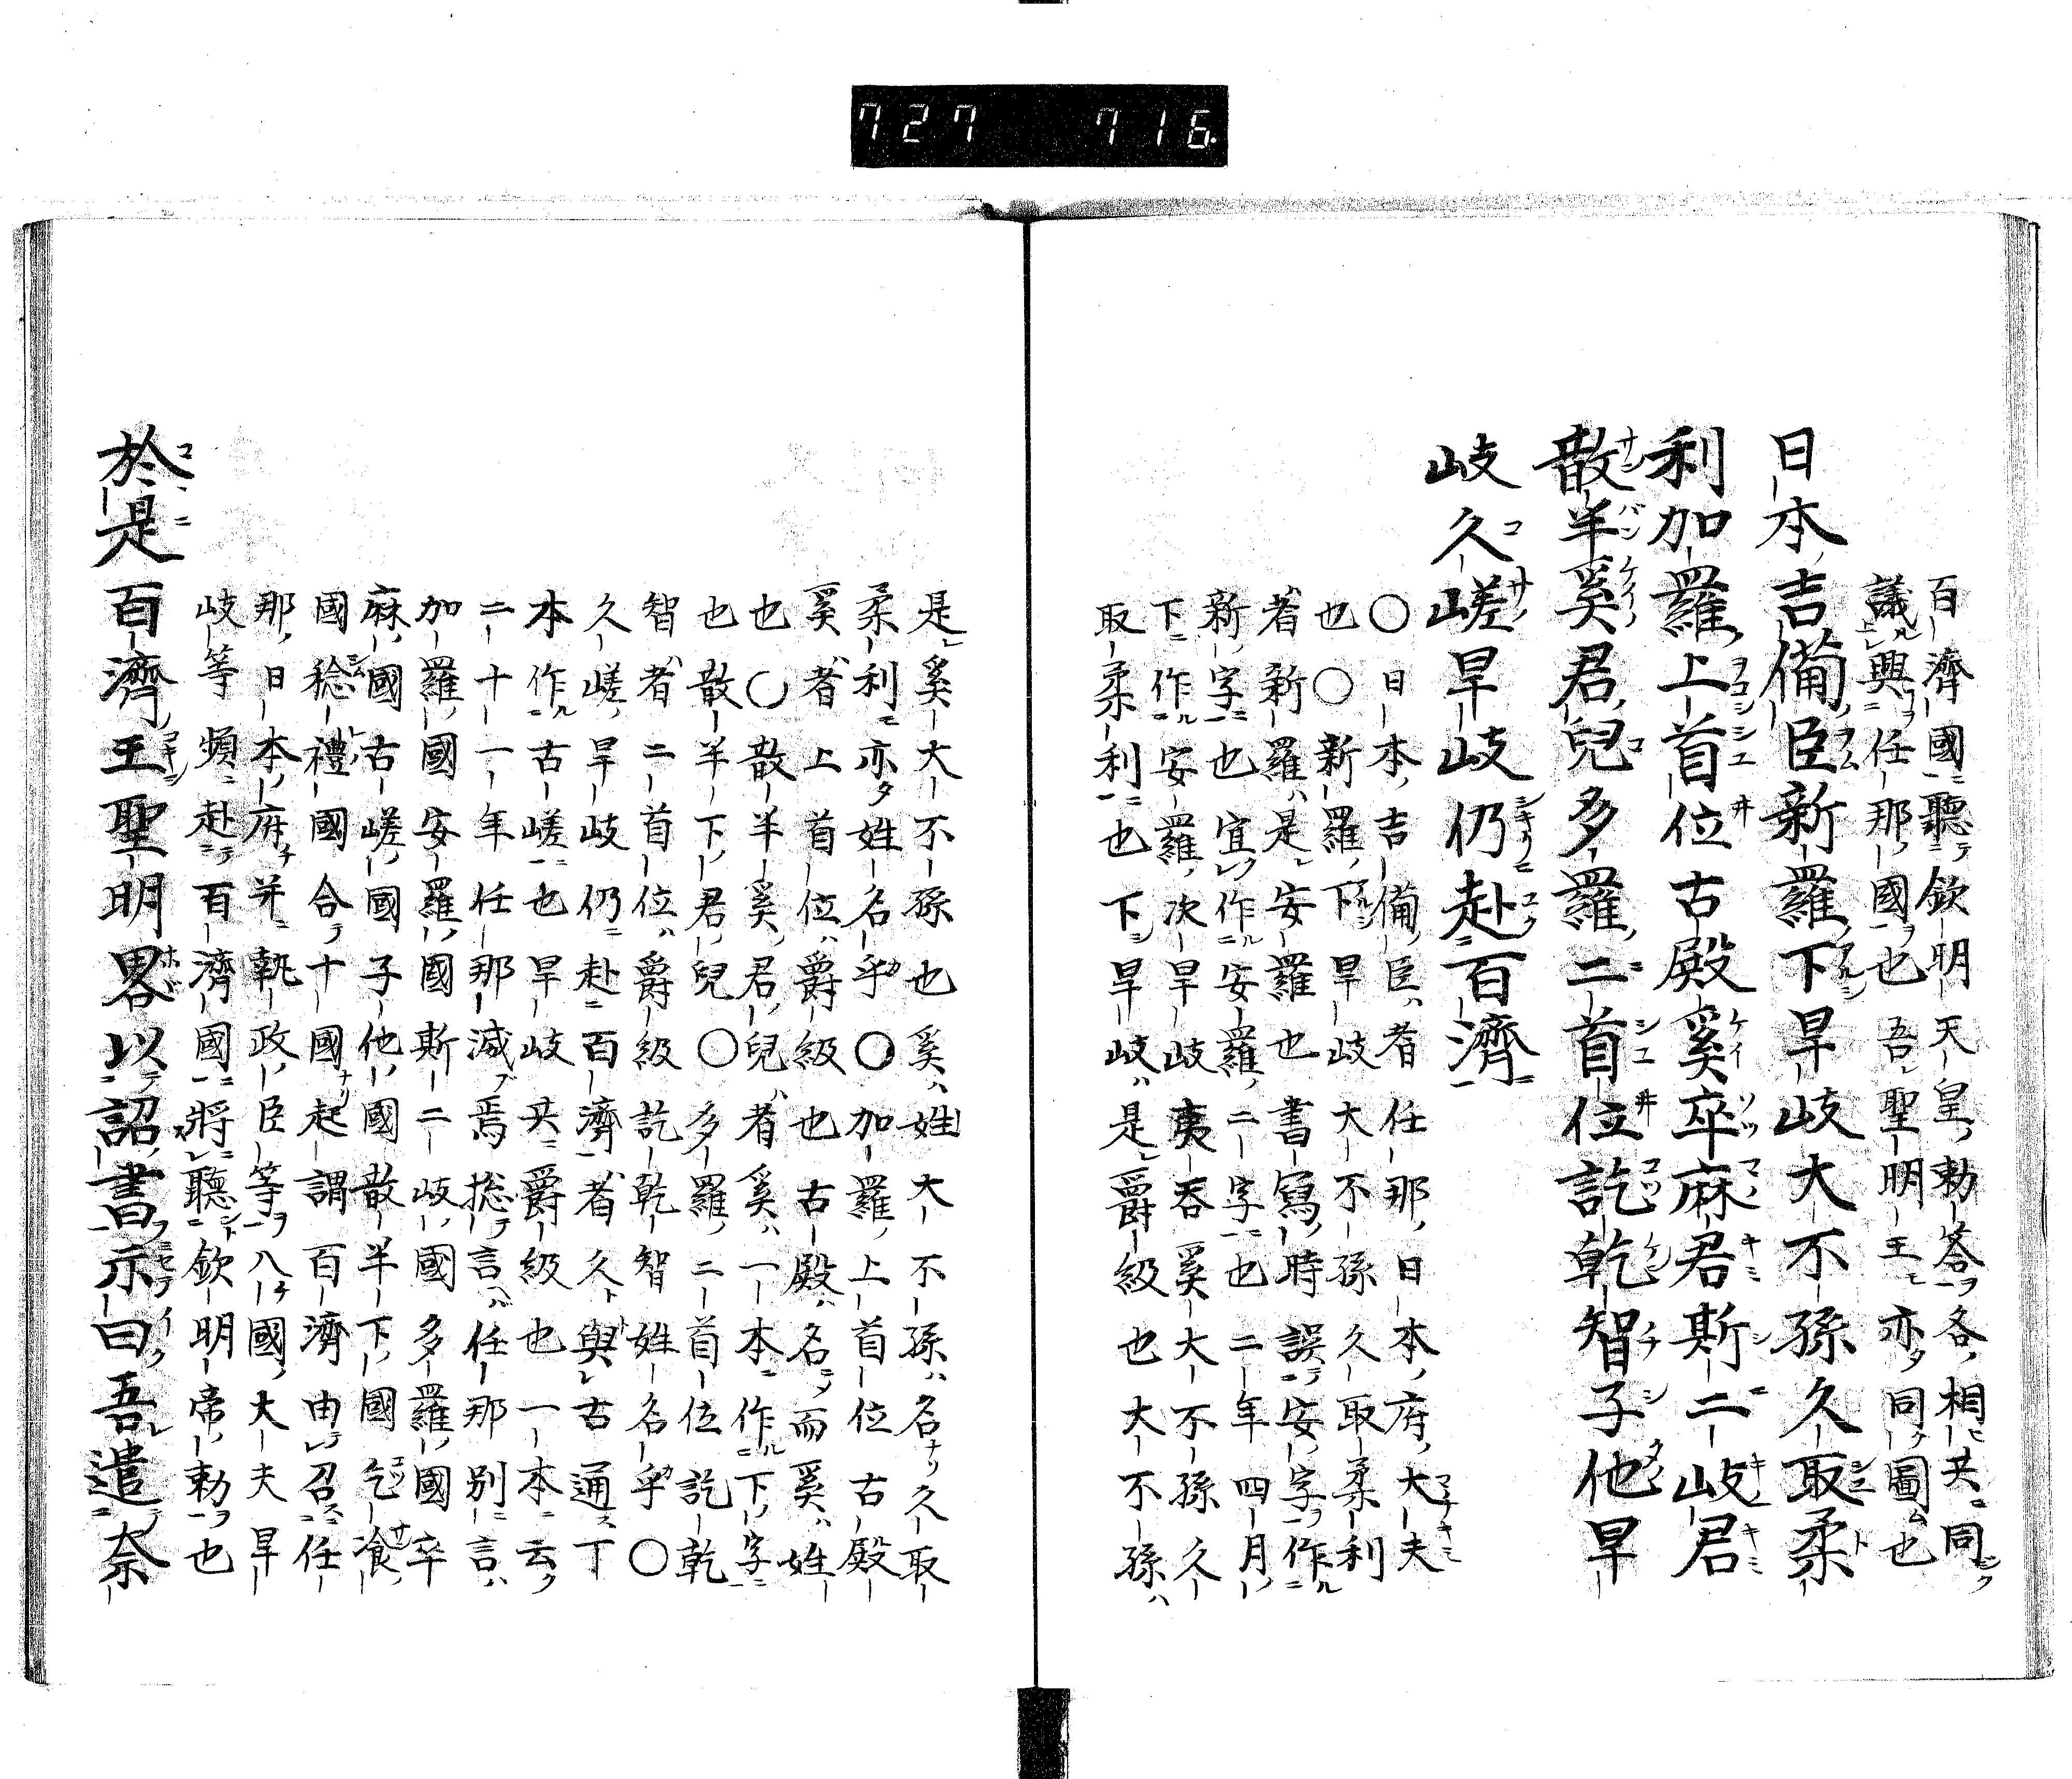 727 716
百濟國聽欽明天皇勅答各相共同
議興任那國也吾聖明王亦同圖也
日本吉備臣新羅下旱岐大不孫久取柔
利加羅上首位古殿奚卒麻君斯二岐君
散半奚君兒多羅二首位訖乾智子他旱
岐久嵯旱岐仍赴百濟
〇日本吉備臣者任那日本府大夫
也〇新羅下旱岐大不孫久取柔利
者新羅是安羅也書寫時誤安字作
新字也宜作安羅二字也二年四月
下作安羅次旱岐夷呑奚大不孫久
取柔利也下旱岐是爵級也大不孫
是奚大不孫也奚姓大不孫名久取
柔利亦姓名乎〇加羅上首位古殿
奚者上首位爵級也古殿名而奚姓
也〇散半奚君兒者奚一本作下字
也散半下君兒〇多羅二首位訖乾
智者二首位爵級訖乾智姓名乎〇
久嵯旱岐仍赴百濟者久與古通丁
本作古嵯也旱岐共爵級也一本云
二十一年任那滅焉捴言任那別言
加羅國安羅國斯二岐國多羅國卒
麻國古嵯國子他國散半下國乞飡
國稔禮國合十國起謂百濟由召任
那日本府并執政臣等八國大夫旱
岐等頻赴百濟國將聽欽明帝勅也
於是百濟王聖明畧以詔書示曰吾遣奈